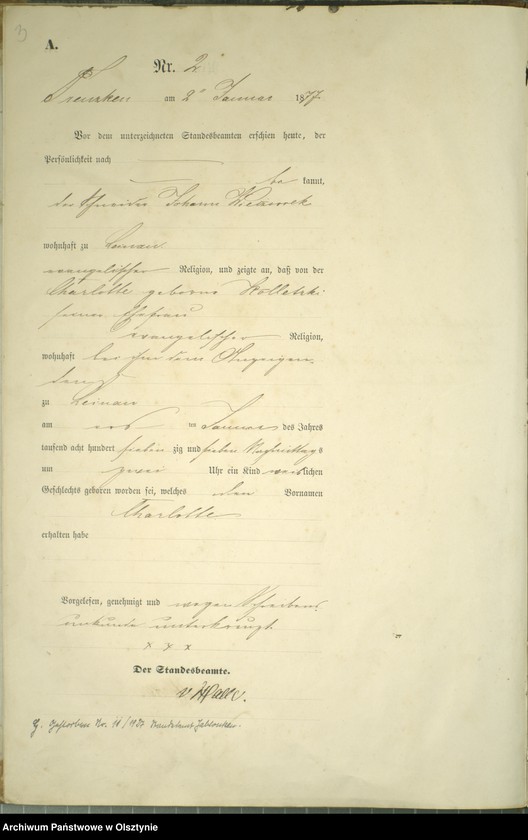 3
A.
Nr. 2
am 2ª Januar 1877
Vor dem unterzeichneten Standesbeamten erschien heute, der
Persönlichkeit nach
be kannt,
der Schneider Johann
wohnhaft zu Leinau
evangelischer Religion, und zeigte an, daß von der
Charlotte geborene Kollatzki
seiner Ehefrau
evangelischer Religion,
wohnhaft bei ihm dem Anzeigen-
den
zu Leinau
am ten Januar des Jahres
tausend acht hundert sieben zig und sieben Nachmittags
um zwei Uhr ein Kind weiblichen
Geschlechts geboren worden sei, welches den Vornamen
Charlotte
erhalten habe
Vorgelesen, genehmigt und wegen Schreibens-
unkunde unterkreuzt
x x x
Der Standesbeamte.
Gestorben Nr.
Archiwum Państwowe w Olsztynie